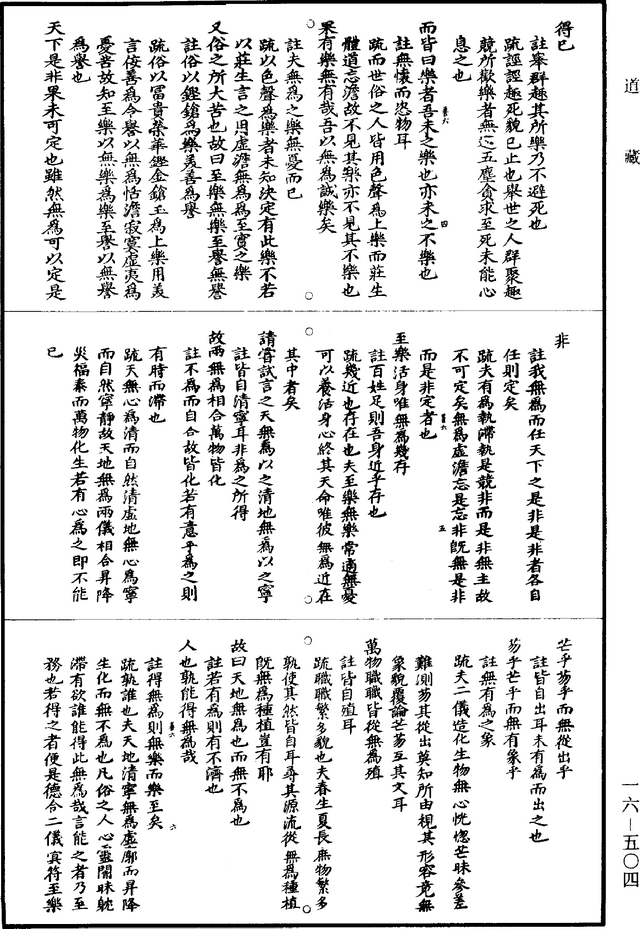 道藏
得已
註舉群趣其所樂乃不避死也
疏誙誙趣死貌已止也舉世之人群聚趣
競所歡樂者無過五塵貪求至死未能心
息之也
而皆曰樂者吾未之樂也亦未之不樂也
註無懷而恣物耳
疏而世俗之人皆用色聲為上樂而莊生
體道忘澹故不見其樂亦不見其不樂也
果有樂無有哉吾以無為誠樂矣
註夫無為之樂無憂而已
疏以色聲為樂者未知決定有此樂不若
以莊生言之用虛澹無為為至實之樂
又俗之所大苦也故曰至樂無樂至譽無譽
註俗以鏗鎗為樂美善為譽
疏俗以富貴榮華鏗金鎗玉為上樂用美
言佞善為令譽以無為恬澹寂寞虛夷為
憂苦故知至樂以無樂為樂至譽以無譽
為譽也
天下是非果未可定也雖然無為可以定是
非
註我無為而任天下之是非是非者各自
任則定矣
疏夫有為執滯執是競非而是非無主故
不可定矣無為虛澹忘是忘非既無是非
而是非定者也
至樂活身唯無為幾存
註百姓足則吾身近乎存也
疏幾近也存在也夫至樂無樂常適無憂
可以養活身心終其天命唯彼無為近在
其中者矣
請嘗試言之天無為以之清地無為以之寧
註皆自清寧耳非為之所得
故兩無為相合萬物皆化
註不為而自合故皆化若有意乎為之則
有時而滯也
疏天無心為清而自然清虛地無心為寧
而自然寧靜故天地無為兩儀相合昇降
災福泰而萬物化生若有心為之即不能
已
芒乎芴乎而無從出乎
註皆自出耳未有為而出之也
芴乎芒乎而無有象乎
註無有為之象
疏夫二儀造化生物無心恍惚芒昧參差
難測芴其從出莫知所由視其形容竟無
象貌覆論芒芴互其文耳
萬物職職皆從無為殖
註皆自殖耳
疏職職繁多貌也夫春生夏長庶物繁多
孰使其然皆自耳尋其源流從無為種植
既無為種植豈有耶
故曰天地無為也而無不為也
註若有為則有不濟也
人也孰能得無為哉
註得無為則無樂而樂至矣
疏孰誰也夫天地清寧無為虛廓而昇降
生化而無不為也凡俗之人心靈闇昧耽
滯有欲誰能得此無為哉言能之者乃至
務也若得之者便是德合二儀冥符至樂
一六—五〇四